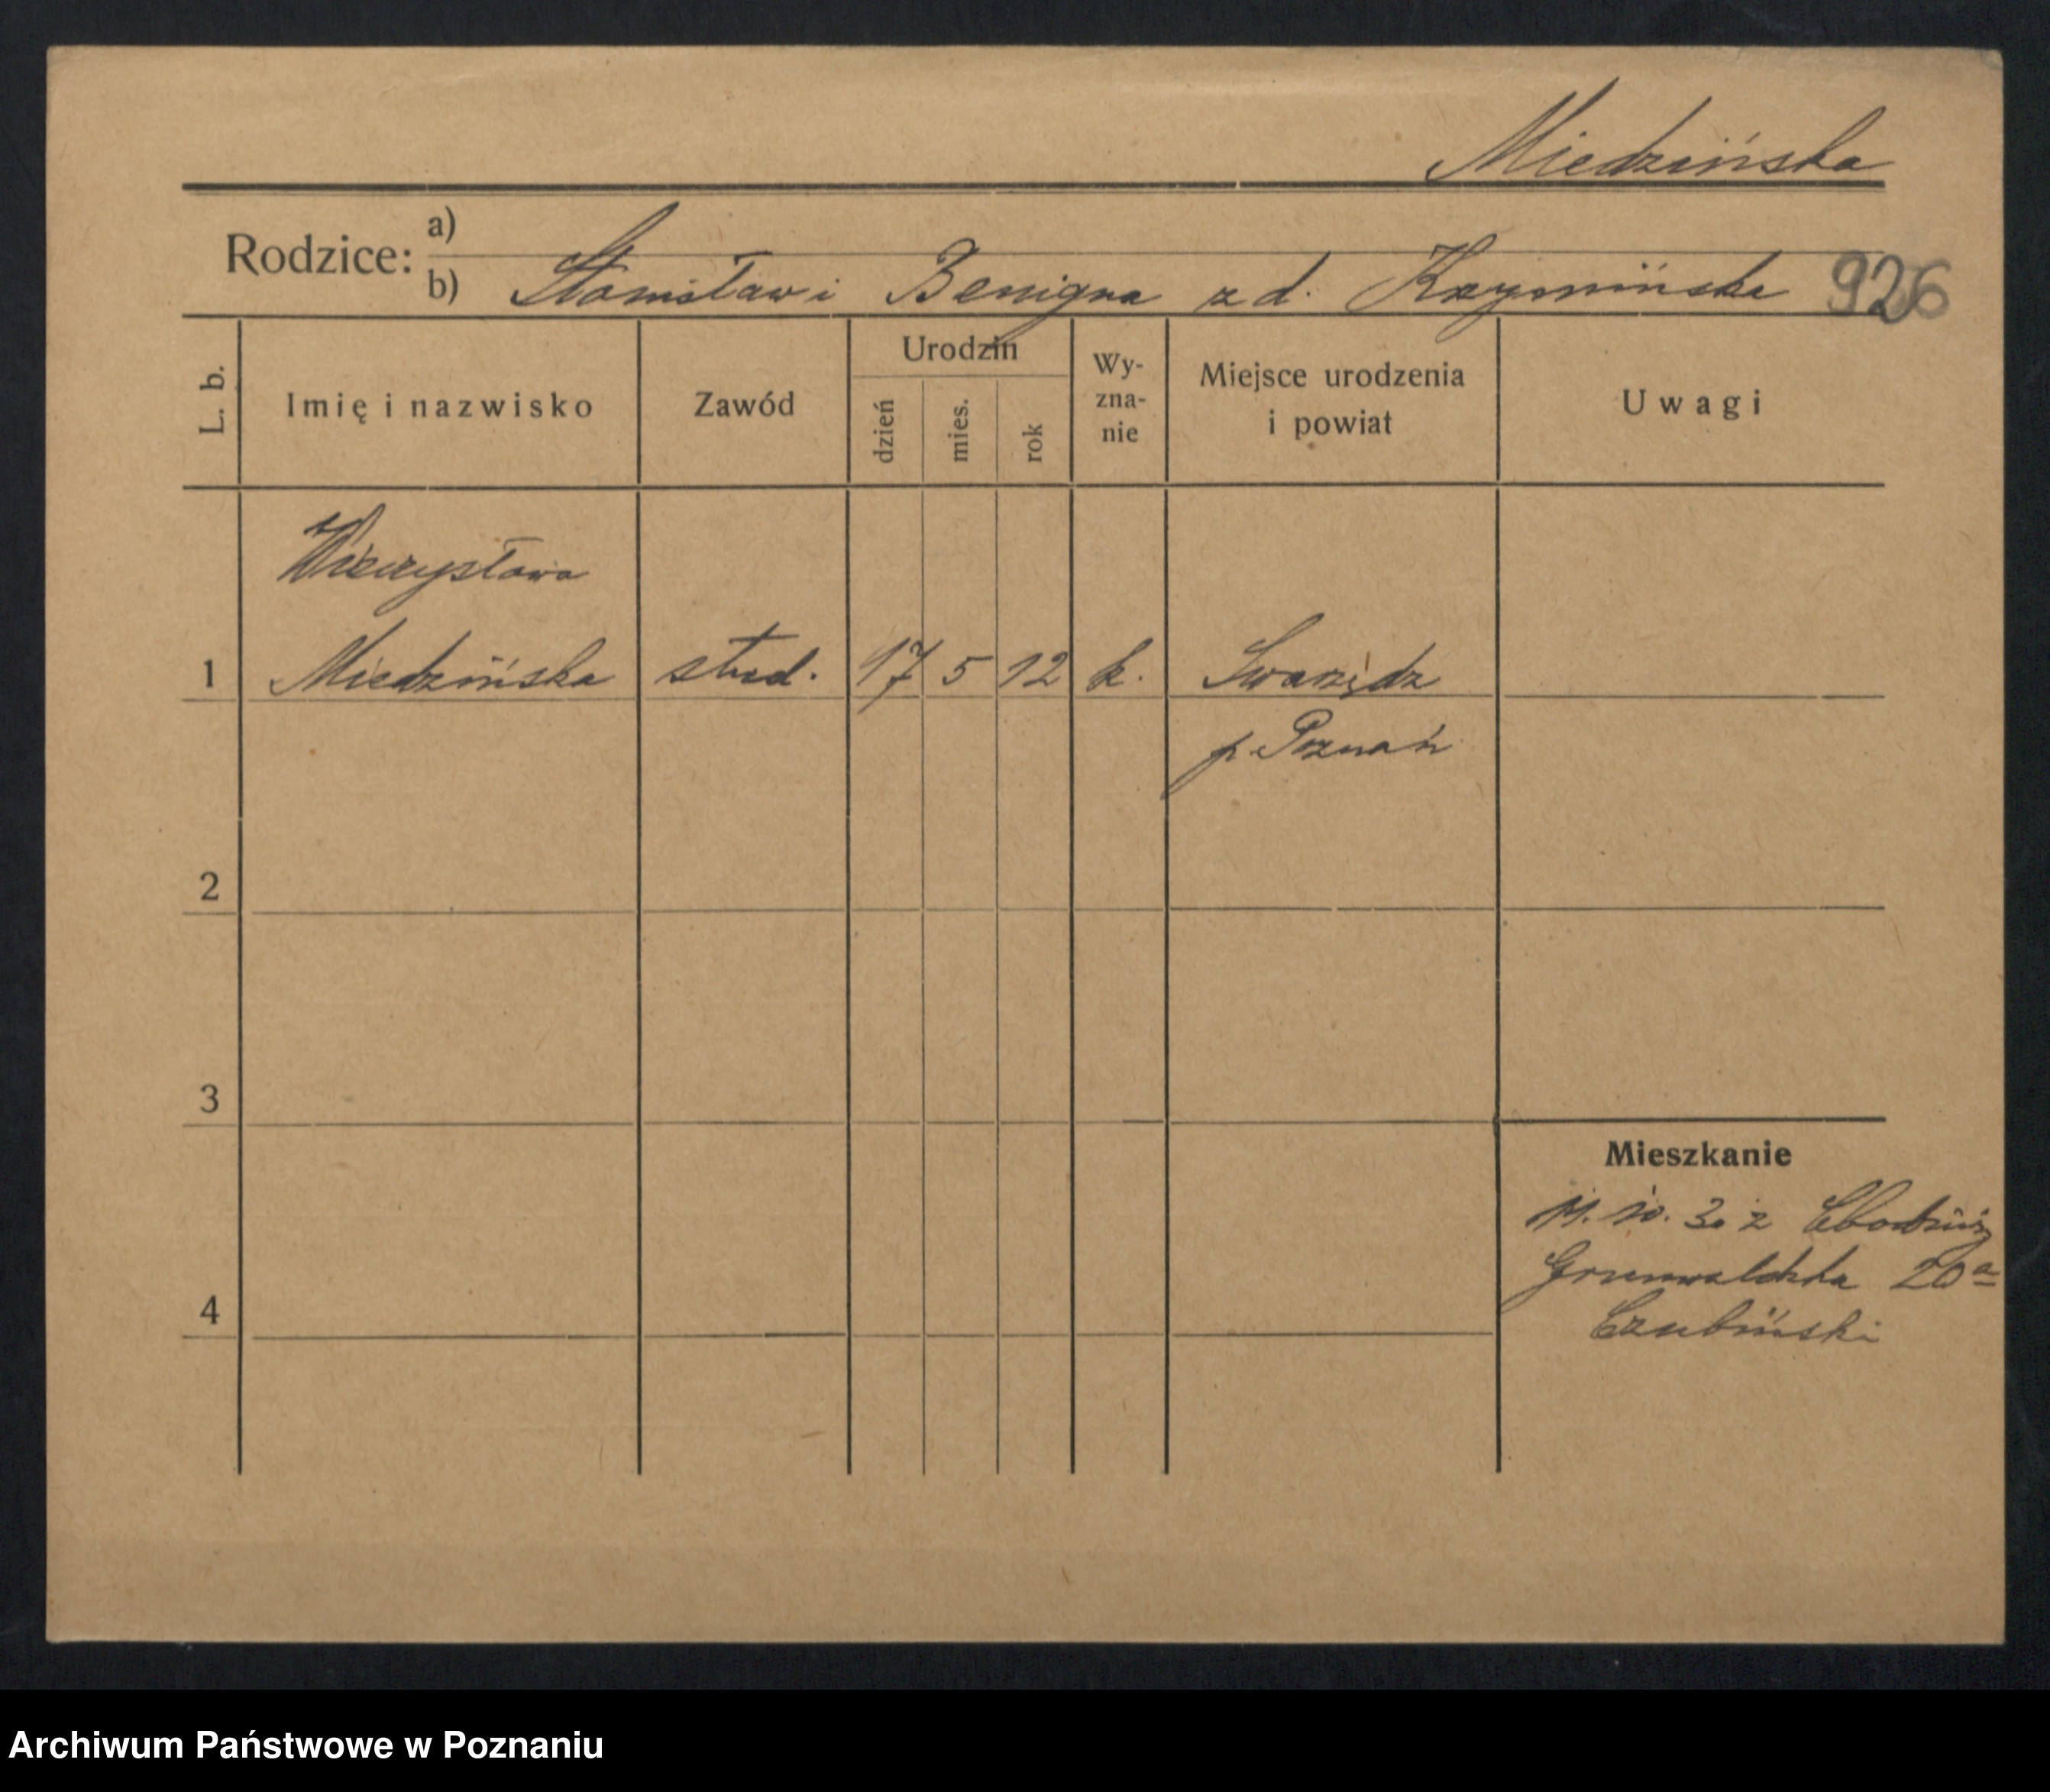 Miedzińska
Rodzice: a)
b) Stanisław i Benigna z d. Krzymińska 926
L. b. Imię i nazwisko Zawód Urodzin dzień mies. rok Wy-zna-nie Miejsce urodzenia i powiat Uwagi
Mieczysława
1 Miedzińska stud. 17 5 12 k. Swarzędz
p. Poznań
2
3
Mieszkanie
11. 10. 32 z
Grunwaldzka 20a
4
Czubiński
Archiwum Państwowe w Poznaniu